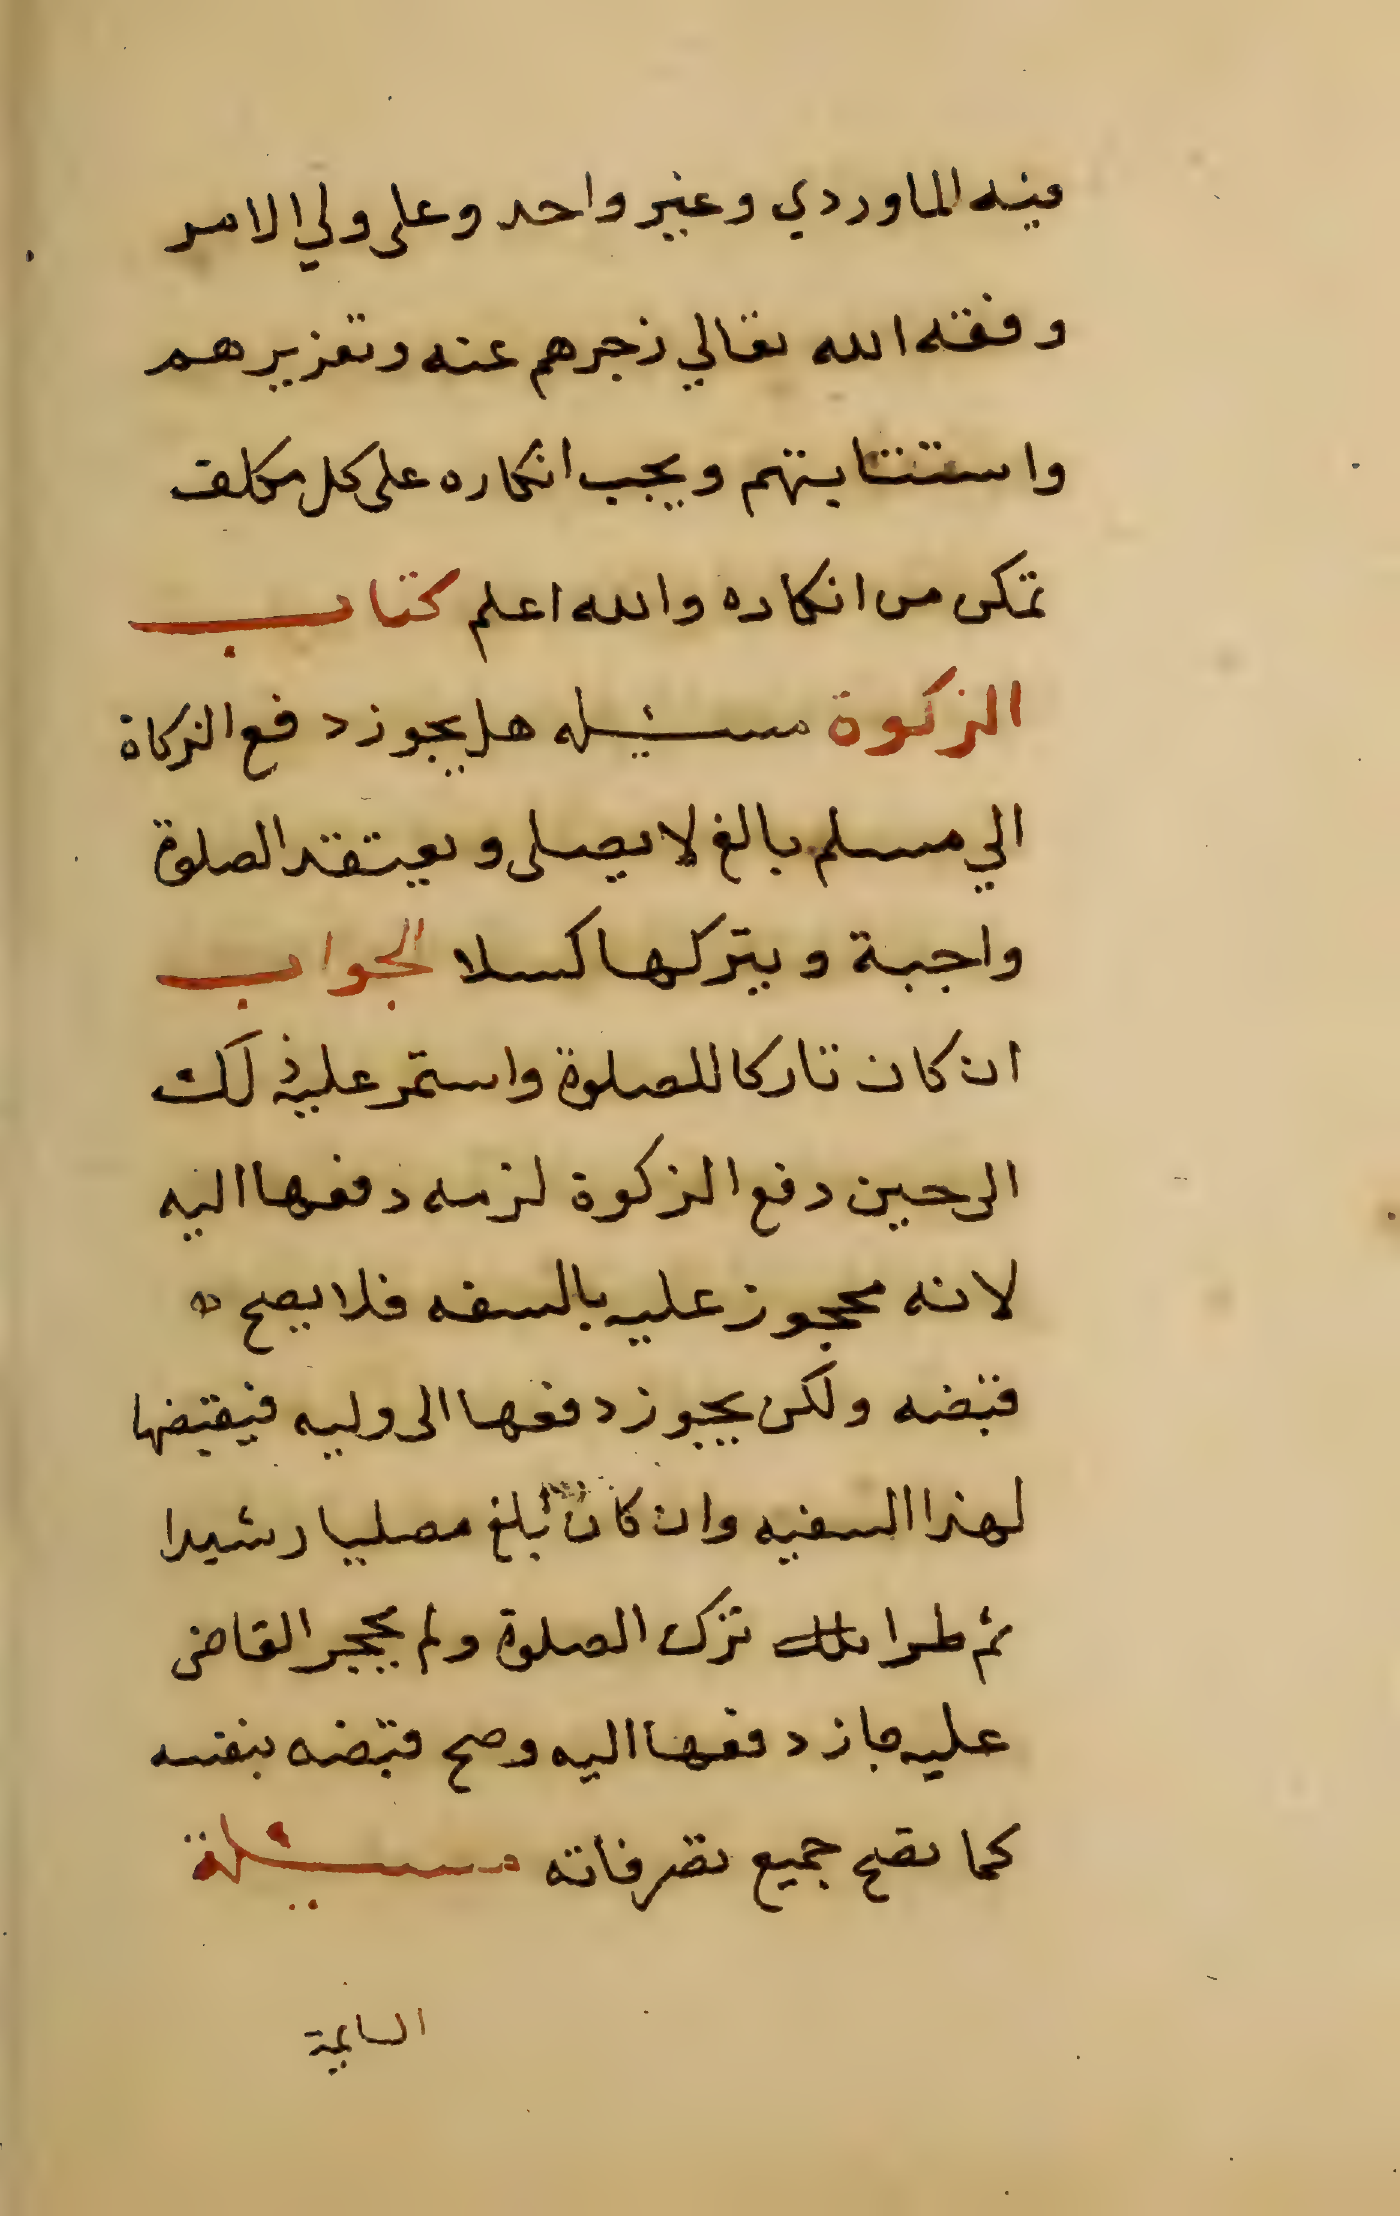 فيه الماوردي وغير واحد وعلى ولي الامر
وفقه الله تعالي زجرهم عنه وتعزيرهم
واستتابتهم ويجب انكاره على كل مكلف
تمكن من انكاره والله اعلم كتاب
الزكوة مسئيله هل يجوز دفع الزكاة
الي مسلم بالغ لا يصلى ويعتقد الصلوة
واجبة ويتركها كسلا الجواب
ان كان تاركا للصلوة واستمر عليه ذلك
الى حين دفع الزكوة لزمه دفعها اليه
لانه محجوز عليه بالسفه فلا يصح
قبضه ولكن يجوز دفعها الى وليه فيقبضها
لهذا السفيه وان كان بلغ مصليا رشيدا
ثم طرا ترك الصلوة ولم يحجر القاضى
عليه جاز دفعها اليه وصح قبضه بنفسه
كما تصح جميع تصرفاته مسئيلة
السايمة